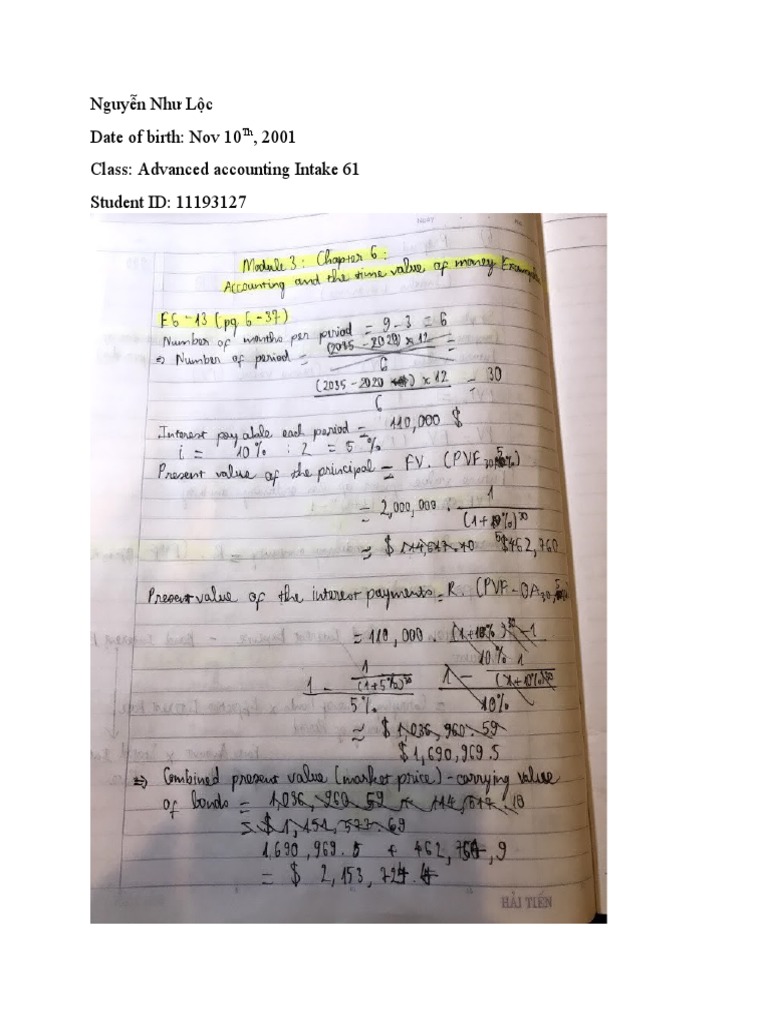 Nguyễn Như Lộc
Date of birth: Nov 10Th, 2001
Class: Advanced accounting Intake 61
Student ID: 11193127
Module 3: Chapter 6:
Accounting and the time value of money
E6-13 (pg. 6-37)
Number of months per period = 9-3 = 6
=> Number of period = (2035 - 2020) x 12 =
6
(2035 - 2020) x 12 = 30
6
Interest payable each period = 110,000 $
i = 10% : 2 = 5%
Present value of the principal = FV. (PVF30, 5%)
= 2,000,000 . 1
(1+5%)^30
= $ 462,760
Present value of the interest payments = R. (PVF-OA30, 5%)
= 110,000 . (1+10%)^30 - 1
10%
1 - 1
(1+5%)^30
5%
1 - 1
(1+10%)^30
10%
= $ 1,036,960.59
$ 1,690,969.5
=> Combined present value (market price) - carrying value
of bonds = 1,036,960.59 +
= $ 1,151,577.69
1,690,969.5 +
= $ 2,153,724.4
HẢI TIẾN